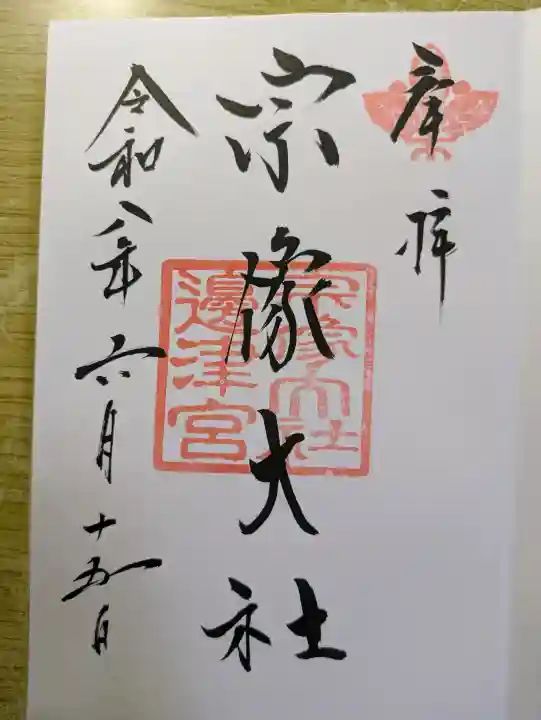 奉拝
宗像大社
宗像大社
邊津宮
令和八年六月十五日